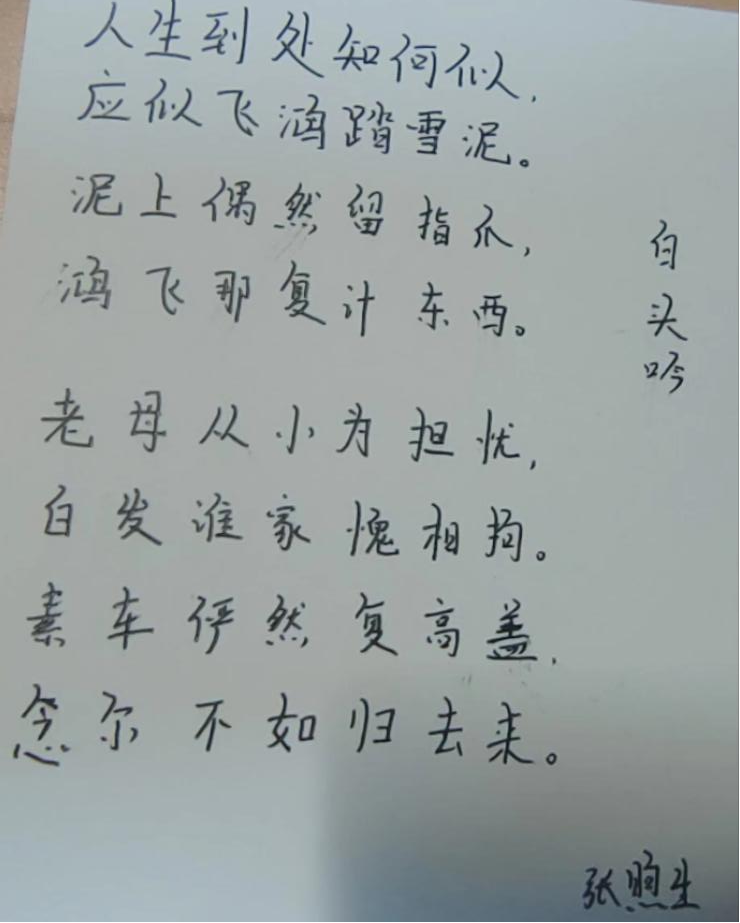 人生到处知何似，
应似飞鸿踏雪泥。
泥上偶然留指爪，
鸿飞那复计东西。
老母从小为担忧，
白发谁家愧相拘。
素车俨然复高盖，
念尔不如归去来。
白头吟
张煦生